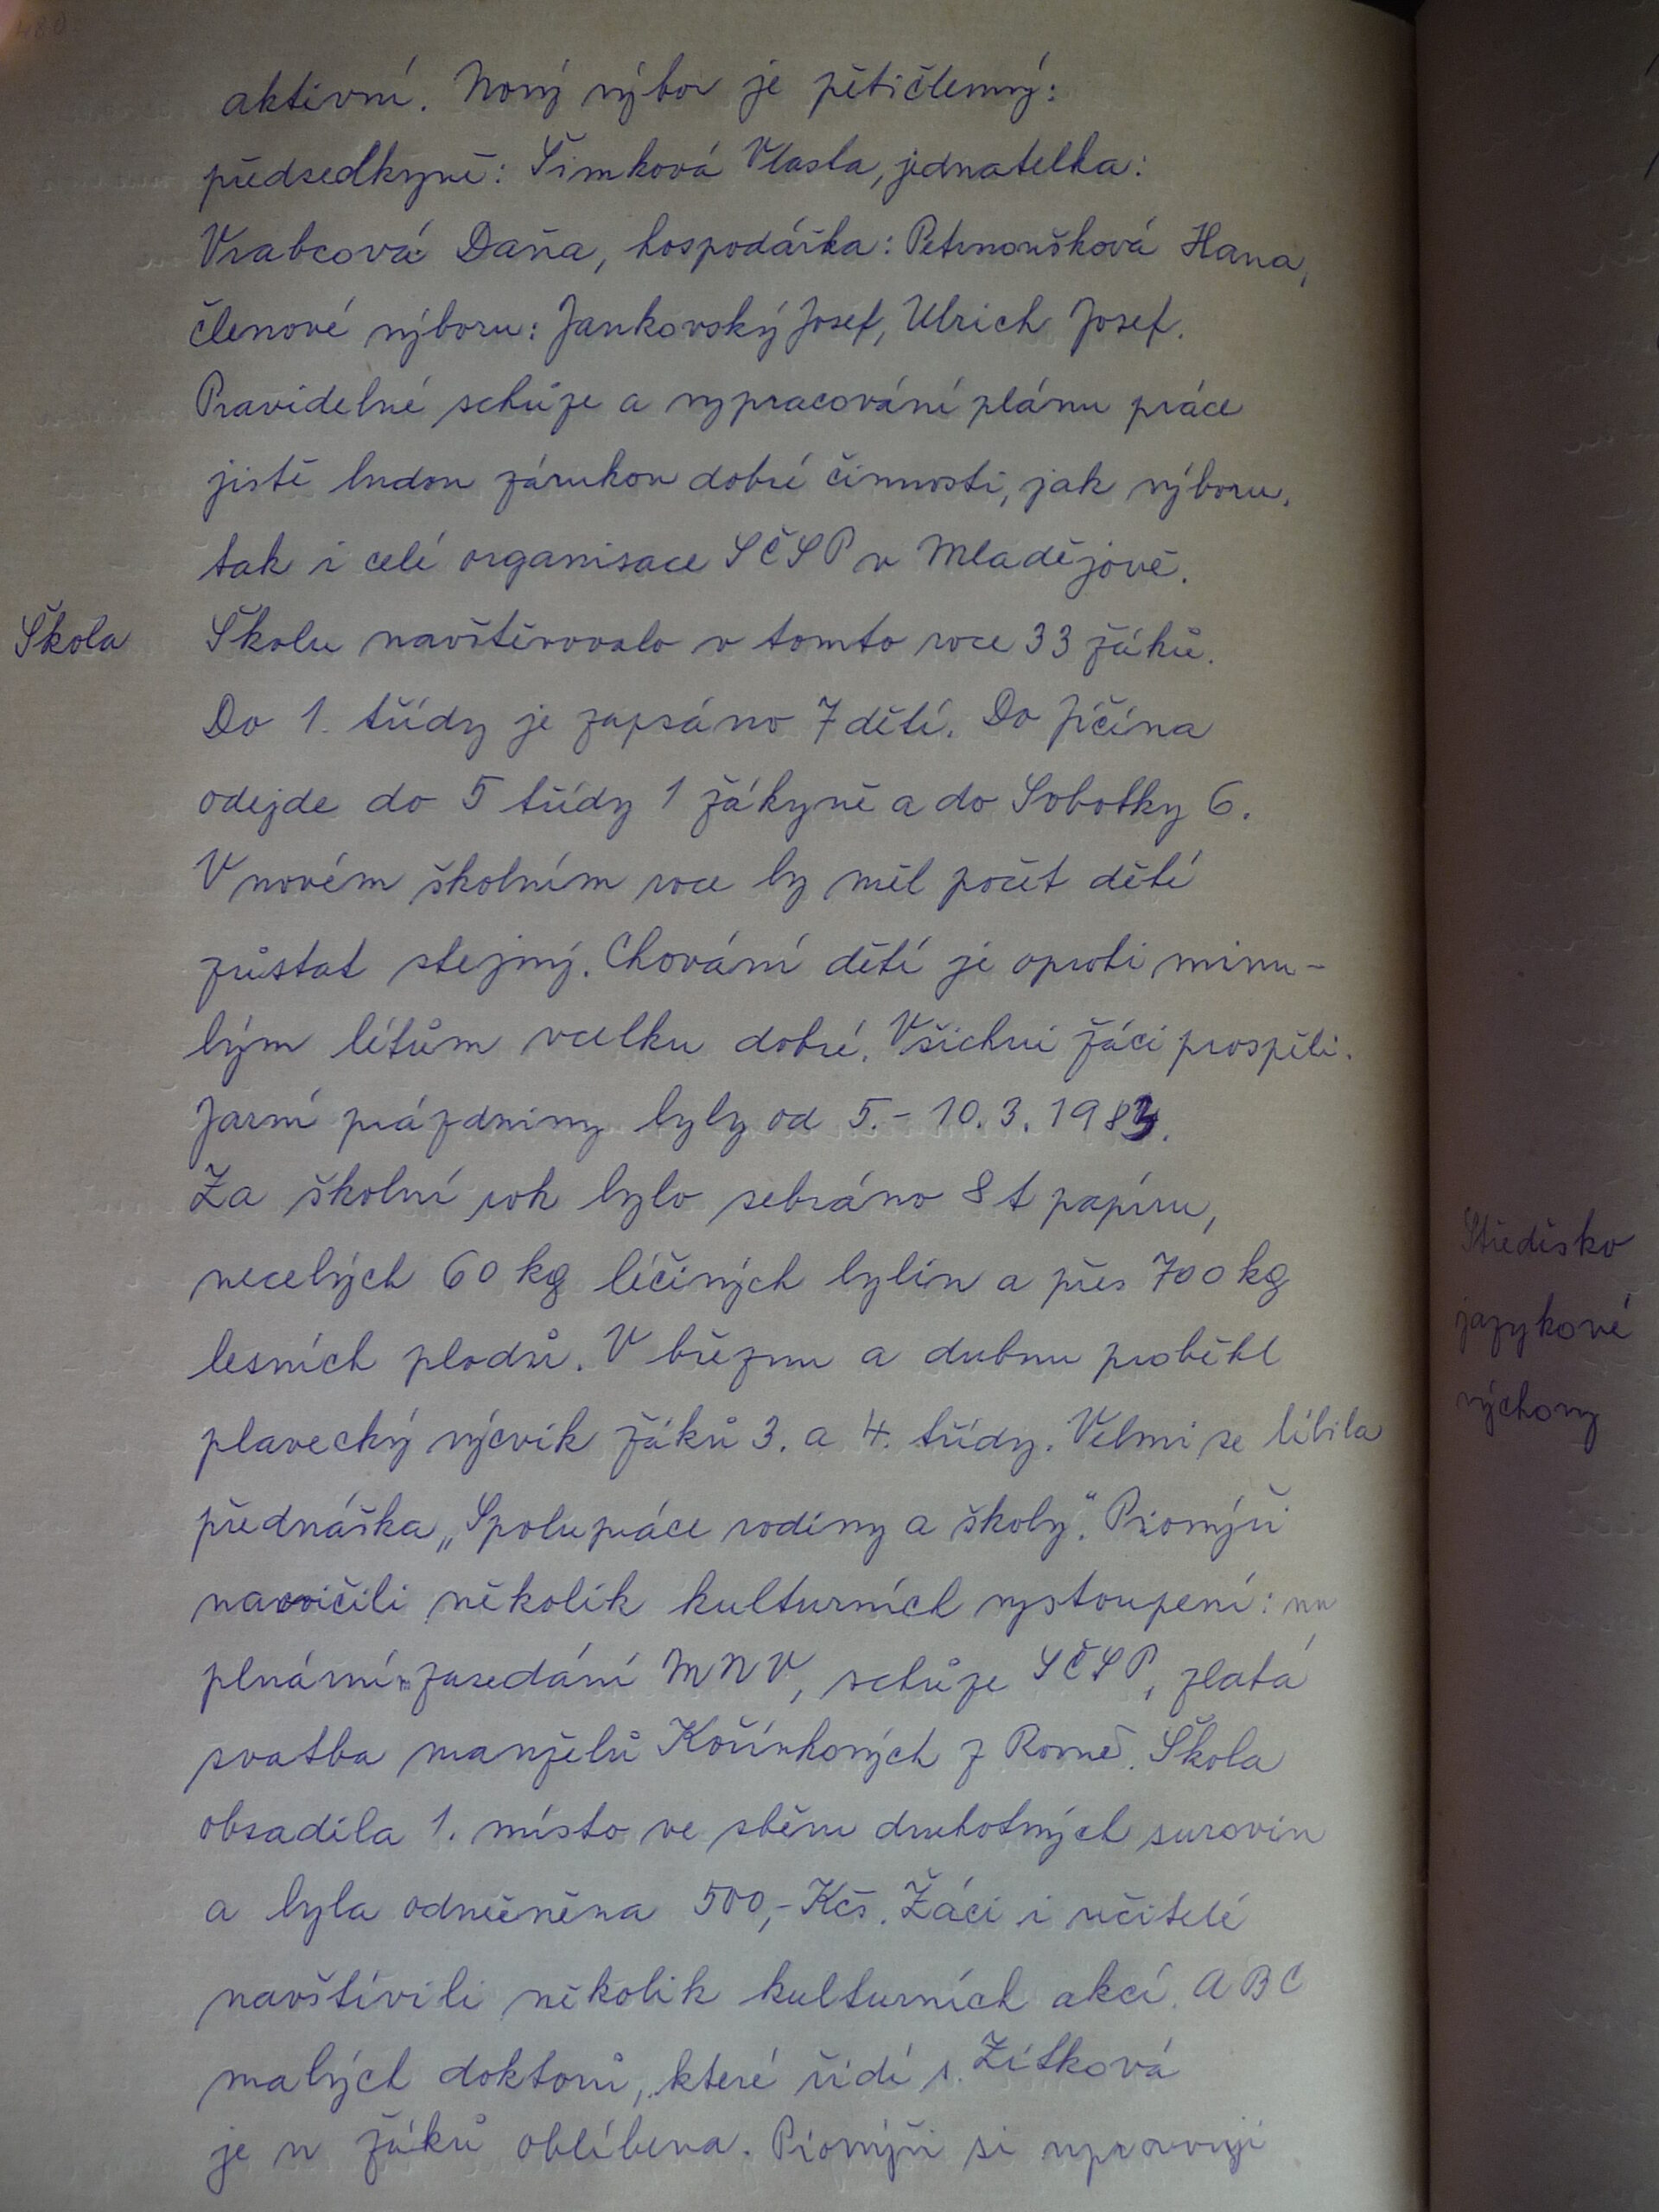 480
aktivní. Nový výbor je pětičlenný:
předsedkyně: Šimková Vlasta, jednatelka:
Vrabcová Daňa, hospodářka: Petrnoušková Hana,
členové výboru: Jankovský Josef, Ulrich Josef.
Pravidelné schůze a vypracování plánu práce
jistě budou zárukou dobré činnosti, jak výboru,
tak i celé organisace SČSP v Mladějově.
Škola
Školu navštěvovalo v tomto roce 33 žáků.
Do 1. třídy je zapsáno 7 dětí. Do Jičína
odejde do 5 třídy 1 žákyně a do Sobotky 6.
V novém školním roce by měl počet dětí
zůstat stejný. Chování dětí je oproti minu-
lým létům vcelku dobré. Všichni žáci prospěli.
Jarní prázdniny byly od 5.- 10. 3. 1983.
Za školní rok bylo sebráno 8 t papíru,
necelých 60 kg léčiných bylin a přes 700 kg
lesních plodů. V březnu a dubnu proběhl
plavecký výcvik žáků 3. a 4. třídy. Velmi se líbila
přednáška „Spolupráce rodiny a školy". Pionýři
nacvičili několik kulturních vystoupení: na
plnárním zasedání MNV, schůze SČSP, zlatá
svatba manželů Kořínkových z Rovně. Škola
obsadila 1. místo ve sběru druhotných surovin
a byla odměněna 500,- Kčs. Žáci i učitelé
navštívili několik kulturních akcí. ABC
malých doktorů, které řídí s. Žitková
je u žáků oblíbena. Pionýři si upravují
Středisko
jazykové
výchovy